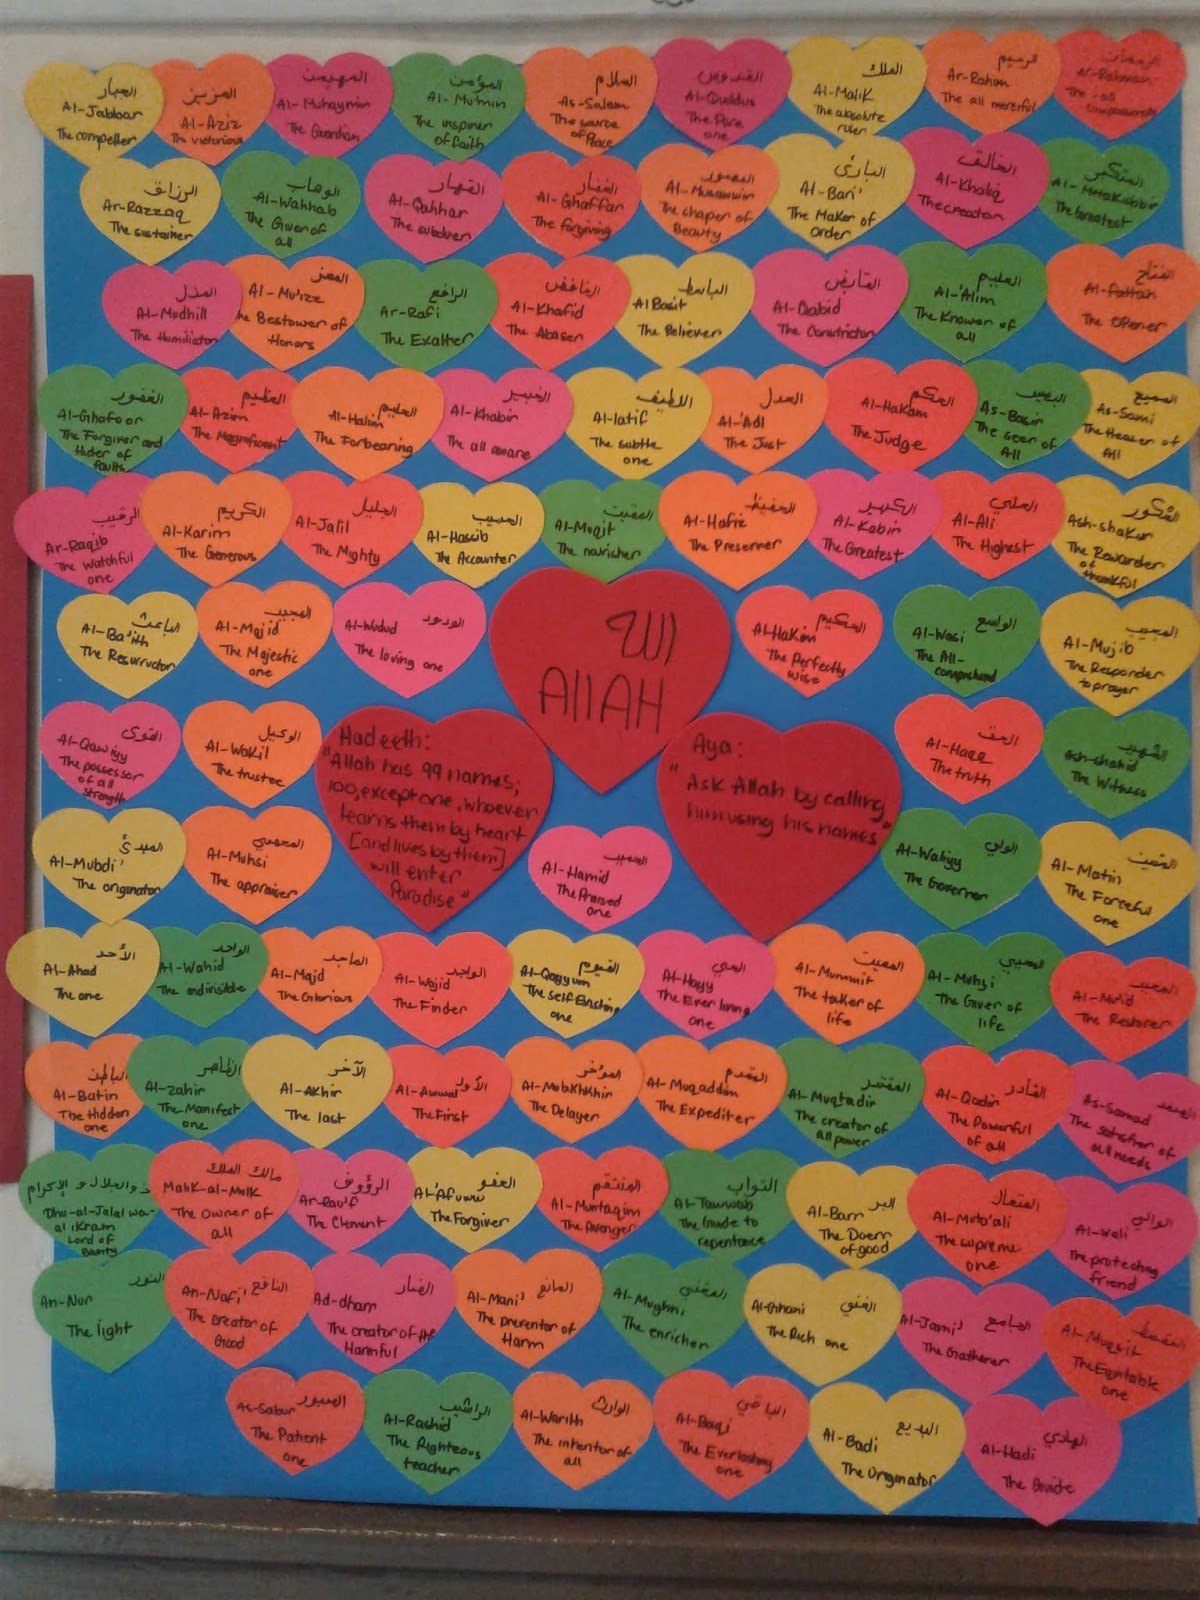 الرحمان
Ar-Rahman
The all
compassionate
الرحيم
Ar-Rahim
The all merciful
الملك
Al-Malik
The absolute
ruler
القدوس
Al-Quddus
The Pure
one
السلام
As-Salam
The source
of Peace
المؤمن
Al-Mu'min
The inspirer
of faith
المهيمن
Al-Muhaymin
The Guardian
العزيز
Al-Aziz
The victorious
الجبار
Al-Jabbar
The compeller
المتكبر
Al-Mutakabbir
The Greatest
الخالق
Al-Khaliq
The creator
البارئ
Al-Bari'
The Maker of
order
المصور
Al-Musawwir
The shaper of
Beauty
الغفار
Al-Ghaffar
The forgiving
القهار
Al-Qahhar
The subduer
الوهاب
Al-Wahhab
The Giver of
all
الرزاق
Ar-Razzaq
The sustainer
الفتاح
Al-fattah
The Opener
العليم
Al-'Alim
The Knower of
all
القابض
Al-Qabid
The Constrictor
الباسط
Al Basit
The Reliever
الخافض
Al-Khafid
The Abaser
الرافع
Ar-Rafi
The Exalter
المعز
Al-Mu'izz
The Bestower of
Honors
المذل
Al-Mudhill
The Humiliator
السميع
As-Sami
The Hearer of
All
البصير
As-Basir
The seer of
All
الحكم
Al-Hakam
The Judge
العدل
Al-'Adl
The Just
اللطيف
Al-latif
The subtle
one
الخبير
Al-Khabir
The all aware
الحليم
Al-Halim
The Forbearing
العظيم
Al-Azim
The Magnificent
الغفور
Al-Ghafoor
The Forgiver and
Hider of
faults
الشكور
Ash-shakur
The Rewarder
of
thankful
العلي
Al-Ali
The Highest
الكبير
Al-Kabir
The Greatest
الحفيظ
Al-Hafiz
The Preserver
المقيت
Al-Muqit
The nourisher
الحسيب
Al-Hasib
The Accounter
الجليل
Al-Jalil
The Mighty
الكريم
Al-Karim
The Generous
الرقيب
Ar-Raqib
The Watchful
one
المجيب
Al-Mujib
The Responder
to prayer
الواسع
Al-Wasi
The All-
comprehend
الحكيم
Al-Hakim
The Perfectly
Wise
الله
AllAH
الودود
Al-Wudud
The loving one
المجيد
Al-Majid
The Majestic
one
الباعث
Al-Ba'ith
The Resurrector
الشهيد
Ash-shahid
The Witness
الحق
Al-Haqq
The truth
Aya:
"Ask Allah by calling
him using his names"
Hadeeth:
"Allah has 99 names;
100, except one, whoever
learns them by heart
[and lives by them]
will enter
Paradise"
الوكيل
Al-Wakil
The trustee
القوي
Al-Qawiyy
The possessor
of all
strength
المتين
Al-Matin
The Forceful
one
الولي
Al-Waliyy
The Governor
الحميد
Al-Hamid
The Praised
one
المحصي
Al-Muhsi
The appraiser
المبدئ
Al-Mubdi'
The originator
المعيد
Al-Muid
The Restorer
المحيي
Al-Muhyi
The Giver of
life
المميت
Al-Mumit
The taker of
life
الحي
Al-Hayy
The Ever living
one
القيوم
Al-Qayyum
The self Existing
one
الواجد
Al-Wajid
The Finder
الماجد
Al-Majd
The Glorious
الواحد
Al-Wahid
The indivisible
الأحد
Al-Ahad
The one
الصمد
As-Samad
The satisfier of
all needs
القادر
Al-Qadir
The Powerful
of all
المقتدر
Al-Muqtadir
The creator of
all power
المقدم
Al-Muqaddim
The Expediter
المؤخر
Al-Muakhkhir
The Delayer
الأول
Al-Awwal
The First
الآخر
Al-Akhir
The last
الظاهر
Al-Zahir
The Manifest
one
الباطن
Al-Batin
The Hidden
one
الوالي
Al-Wali
The protecting
friend
المتعال
Al-Muta'ali
The supreme
one
البر
Al-Barr
The Doer
of good
التواب
At-Tawwab
The Guide to
repentance
المنتقم
Al-Muntaqim
The Avenger
العفو
Al-'Afuww
The Forgiver
الرؤوف
Ar-Rau'f
The Clement
مالك الملك
Malik-al-Mulk
The Owner of
all
ذو الجلال و الإكرام
Dhu-al-Jalal wa-
al ikram
Lord of
Bounty
المقسط
Al-Muqsit
The Equitable
one
الجامع
Al-Jami'
The Gatherer
الغني
Al-Ghani
The Rich one
المغني
Al-Mughni
The enricher
المانع
Al-Mani'
The preventer of
Harm
الضار
Ad-dharr
The creator of the
Harmful
النافع
An-Nafi'
The creator of
Good
النور
An-Nur
The light
الهادي
Al-Hadi
The Guide
البديع
Al-Badi
The Originator
الباقي
Al-Baqi
The Everlasting
one
الوارث
Al-Warith
The inheritor of
all
الراشيد
Al-Rashid
The Righteous
teacher
الصبور
As-Sabur
The Patient
one